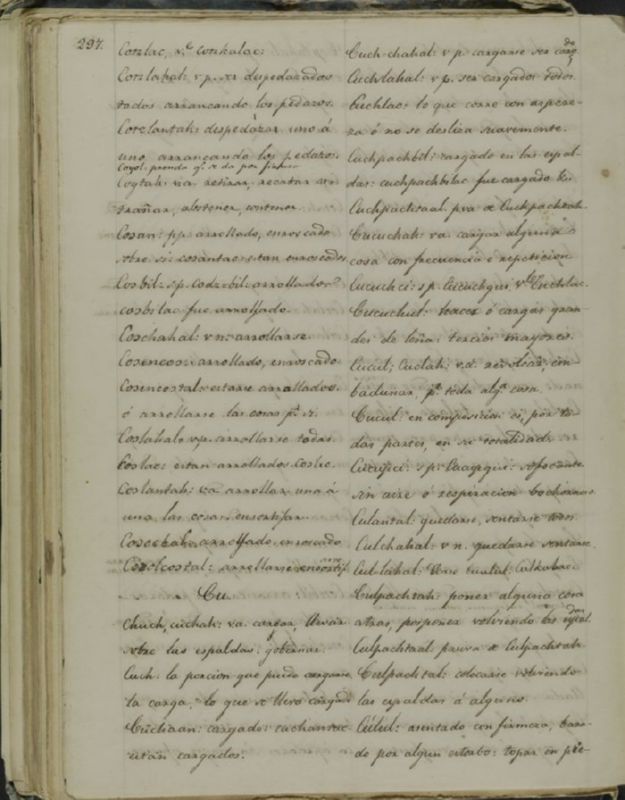 297.
Cotzlac, v.e cotzkalac:
Cotzlahal: v p. ser despedazados
todos arrancando los pedazos.
Cotzlantah: despedazar uno á
uno arrancando los pedazos.
Coyol: prenda q.e se da por
Coytah: va. retirar, recatar
trañar, abstener, contener.
Cosan: pp. arrollado, enroscado
sobre si: cosantac estan enroscados
Cosbil: s p. codz-bil: arrollador
cosbilac fue arrollado.
Coschahal: v n: arrollarse.
Cosencos: arrollado, enroscado
Cosencostal: estarse arrollados
ó arrollarse las cosas p.r si.
Coslahal: v p. arrollarse todas
Coslac: estan arrollados
Coslantah: va arrollar una á
una las cosas: ensortijar.
arrollado enroscado
arrollarse
Cu
Chuch, cuchah: va: cargar, llevar
sobre las espaldas: gobernar.
Cuch: la porcion que puede cargarse,
la carga, lo que se lleva cargado
Cuchaan: cargado: cuchantac
estan cargados.
Cuch-chahal: v p cargarse ser cargado
Cuchlahal: v p. ser cargados todos.
Cuchlac: lo que corre con aspere-
za ó no se desliza suavemente.
Cuchpachbil: cargado en las espal-
das: cuchpachbilac fue cargado
Cuchpachtaal pva de Cuchpachtah.
Cucuchah: va. cargar alguna
cosa con frecuencia ó repeticion
Cucuchci: s p. Cucuchqui
Cucuchul: teaces ó cargas gran-
des de leña: tercios mayores.
Cucul; Cuclah: v.a. revolcar, em-
badunar, p.r toda alg.a cosa.
Cucul: en composicion es, por to-
das partes, en su totalidad.
s p. sofocante
sin aire ó respiracion bochornoso
Culantal: quedarse, sentarse todos.
Culchahal: v n. quedarse sentarse.
Cul-lahal:
Culpachtah: poner alguna cosa
atras, posponer volviendo las espaldas
Culpachtaal pasiva de Culpachtah
Culpachtal: colocarse volviendo
las espaldas á alguno.
Cúlul: asentado con firmeza,
do por algun estorbo: topar en pie-